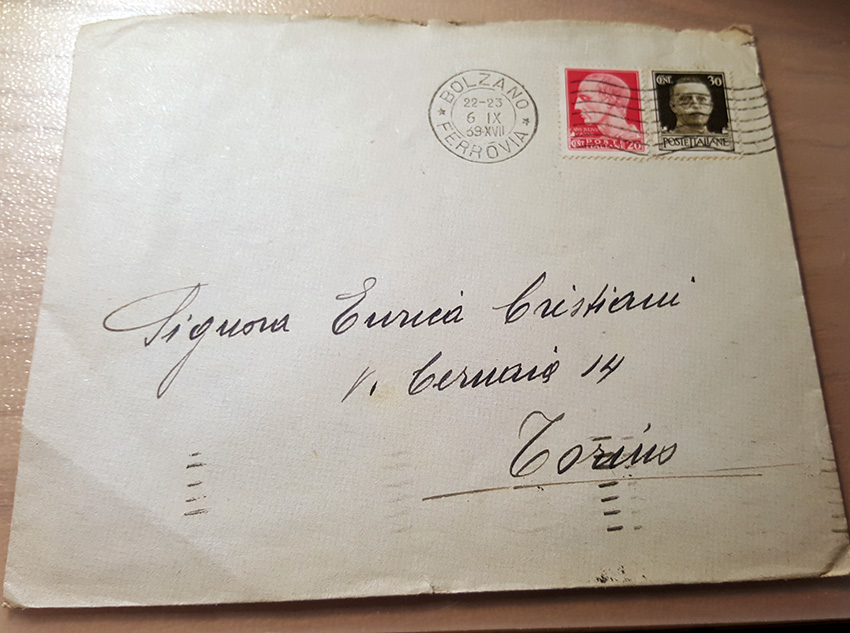 BOLZANO
22-23
6 IX
39-XVII
FERROVIA
CENT POSTE 20
CENT. 30
POSTE ITALIANE
Signora Enrica Cristiani
V. Cernaia 14
Torino